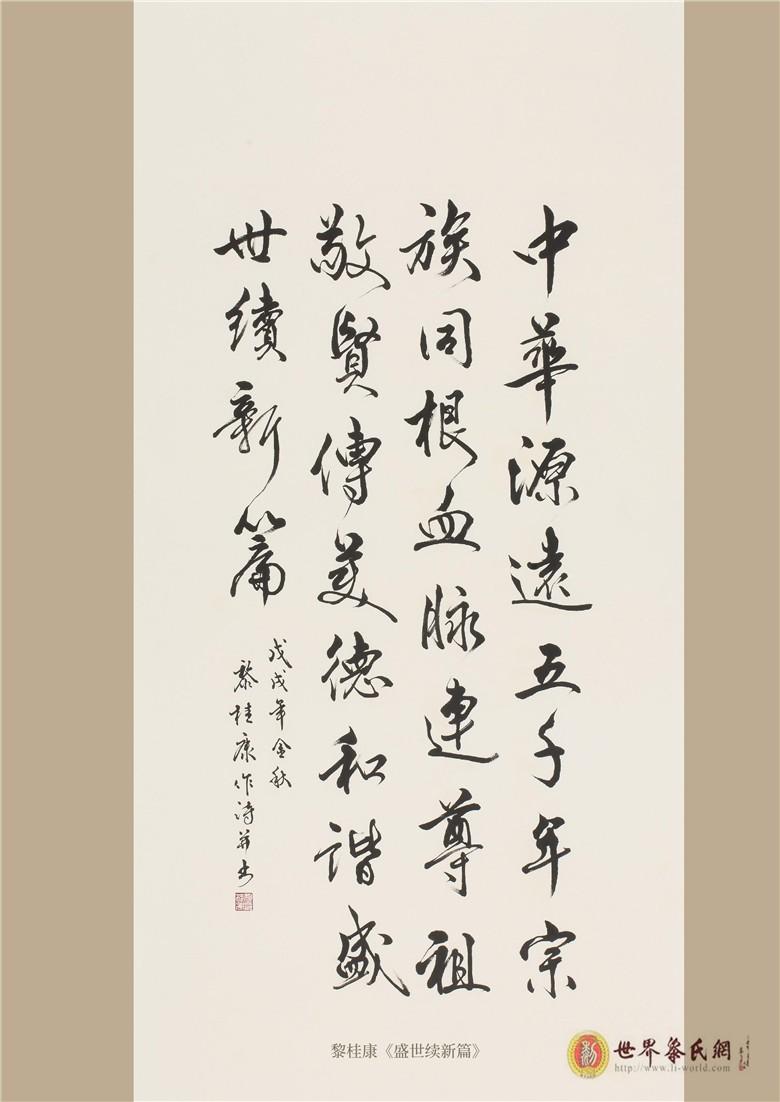 中華源遠五千年宗
族同根血脉連尊祖
敬賢傳美德和諧盛
世續新篇
戊戌年金秋
黎桂康作詩并书
黎桂康《盛世续新篇》
世界黎氏網
http://www.li-world.com